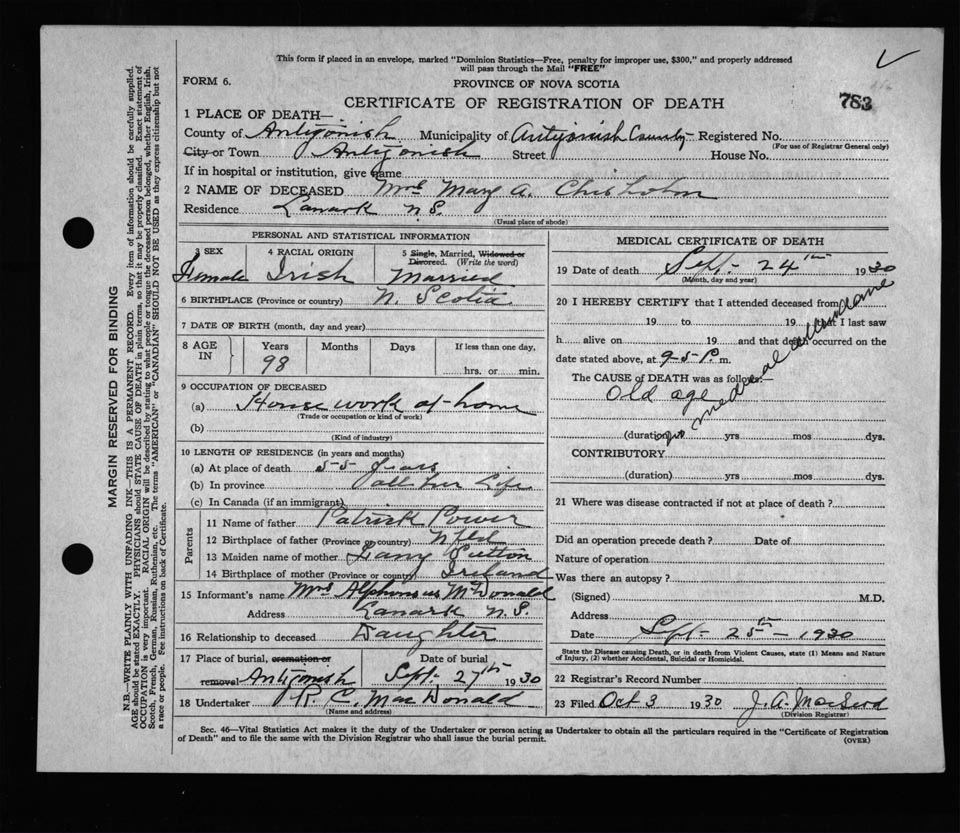 This form if placed in an envelope, marked "Dominion Statistics—Free, penalty for improper use, $300," and properly addressed
will pass through the Mail "FREE"
FORM 6.
PROVINCE OF NOVA SCOTIA
783
CERTIFICATE OF REGISTRATION OF DEATH
1 PLACE OF DEATH—
County of Antigonish Municipality of Antigonish County Registered No.
(For use of Registrar General only)
City or Town Antigonish Street House No.
If in hospital or institution, give name
2 NAME OF DECEASED Mrs Mary A. Chisholm
Residence Lanark N.S.
(Usual place of abode)
PERSONAL AND STATISTICAL INFORMATION
3 SEX 4 RACIAL ORIGIN 5 Single, Married, Widowed or Divorced. (Write the word)
Female Irish Married
6 BIRTHPLACE (Province or country) N. Scotia
7 DATE OF BIRTH (month, day and year)
8 AGE IN Years Months Days If less than one day,
98 hrs. or min.
9 OCCUPATION OF DECEASED
(a) House work at home
(Trade or occupation or kind of work)
(b)
(Kind of industry)
10 LENGTH OF RESIDENCE (in years and months)
(a) At place of death 55 years
(b) In province all her Life
(c) In Canada (if an immigrant)
Parents
11 Name of father Patrick Power
12 Birthplace of father (Province or country) Nfld
13 Maiden name of mother Sutton
14 Birthplace of mother (Province or country) Ireland
15 Informant's name Mrs Alphonsus McDonald
Address Lanark N.S.
16 Relationship to deceased Daughter
17 Place of burial, cremation or removal Antigonish Date of burial Sept 27th 1930
18 Undertaker R. C. MacDonald
(Name and address)
MEDICAL CERTIFICATE OF DEATH
19 Date of death Sept- 24th 1930
(Month, day and year)
20 I HEREBY CERTIFY that I attended deceased from
19 to 19 that I last saw
h alive on 19 and that death occurred on
date stated above, at 9-5-P. m.
The CAUSE of DEATH was as follows:—
Old age
no medical attendance
(duration) yrs mos dys.
CONTRIBUTORY
(duration) yrs mos dys.
21 Where was disease contracted if not at place of death?
Did an operation precede death? Date of
Nature of operation
Was there an autopsy?
(Signed) M.D.
Address
Date Sept- 25th- 1930
State the Disease causing Death, or in death from Violent Causes, state (1) Means and Nature
of Injury, (2) whether Accidental, Suicidal or Homicidal.
22 Registrar's Record Number
23 Filed Oct 3 1930 J. A. MacLeod
(Division Registrar)
Sec. 46—Vital Statistics Act makes it the duty of the Undertaker or person acting as Undertaker to obtain all the particulars required in the "Certificate of Registration
of Death" and to file the same with the Division Registrar who shall issue the burial permit.
(OVER)
MARGIN RESERVED FOR BINDING
N.B.—WRITE PLAINLY WITH UNFADING INK—THIS IS A PERMANENT RECORD. Every item of information should be carefully supplied.
AGE should be stated EXACTLY. PHYSICIANS should STATE CAUSE OF DEATH in plain terms, so that it may be properly classified. Exact statement of
OCCUPATION is very important. RACIAL ORIGIN will be described by stating to what people or tongue the deceased person belonged, whether English, Irish,
Scotch, French, German, Russian, Ruthenian, etc. The terms "AMERICAN" or "CANADIAN" SHOULD NOT BE USED as they express citizenship but not
a race or people. See instructions on back of Certificate.